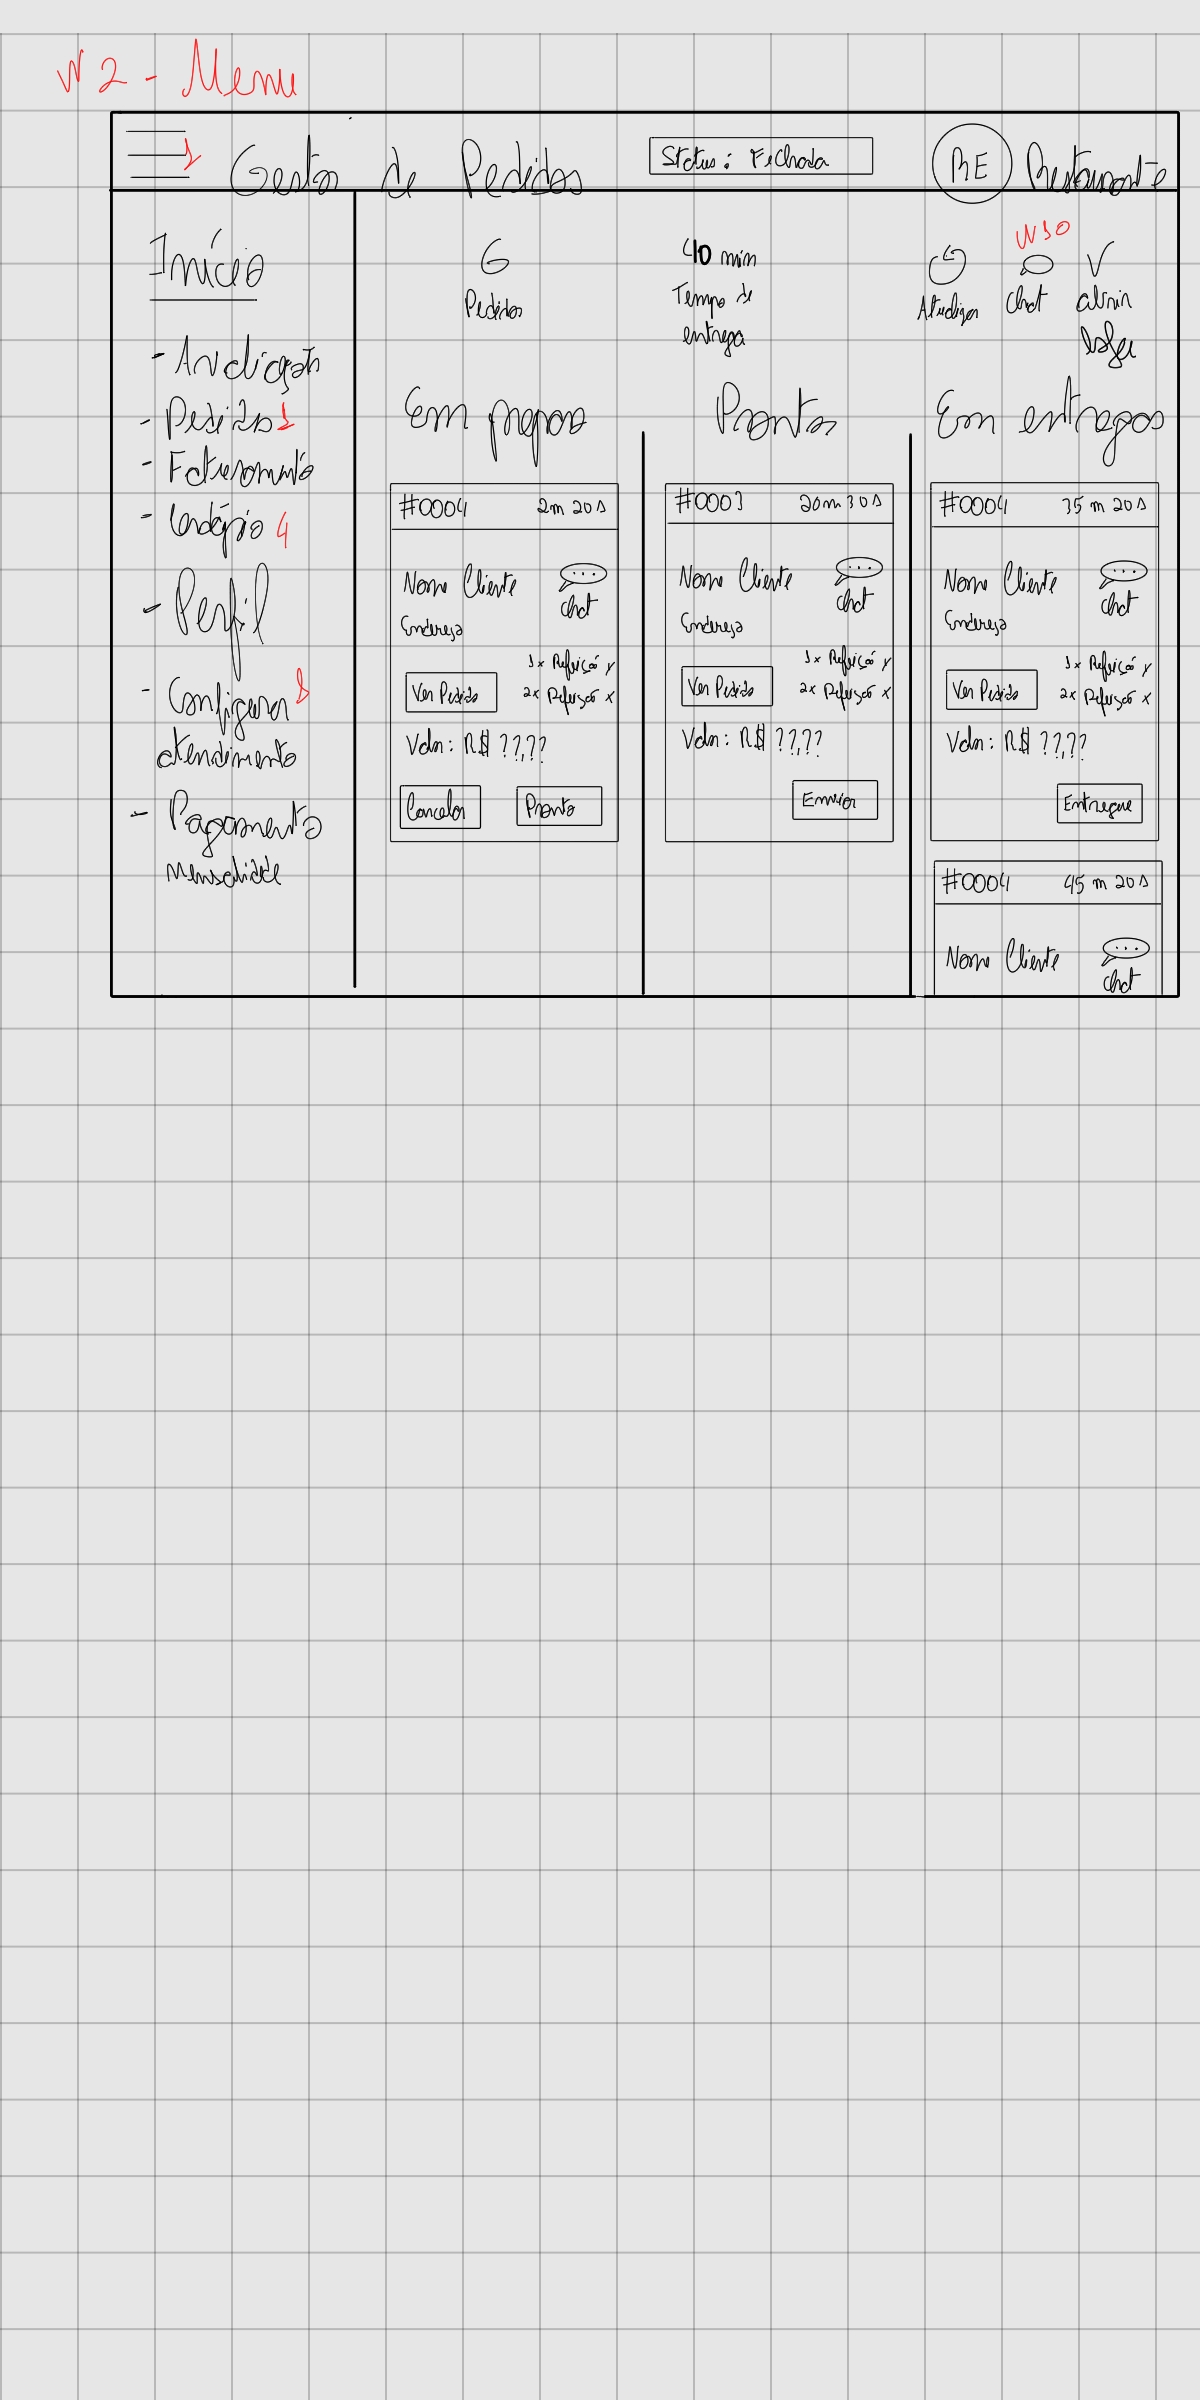 W2 - Menu
1 Gestor de Pedidos
Status: Fechada
RE Restaurante
Início
- Avaliação
- Pedidos 1
- Faturamento
- Cardápio 4
- Perfil
- Configurar 8
atendimento
- Pagamento
Mensalidade
6
Pedidos
40 min
Tempo de
entrega
Atualizar
W10
Chat
abrir
Em preparo
#0004 2m 20s
Nome Cliente
Chat
Endereço
1x Refeição y
Ver Pedido
2x Refeição x
Valor: R$ ??,??
Cancelar
Pronto
Prontos
#0003 20m 30s
Nome Cliente
Chat
Endereço
1x Refeição y
Ver Pedido
2x Refeição x
Valor: R$ ??,??
Enviar
Em entregas
#0004 35 m 20s
Nome Cliente
Chat
Endereço
1x Refeição y
Ver Pedido
2x Refeição x
Valor: R$ ??,??
Entregue
#0004 45 m 20s
Nome Cliente
Chat